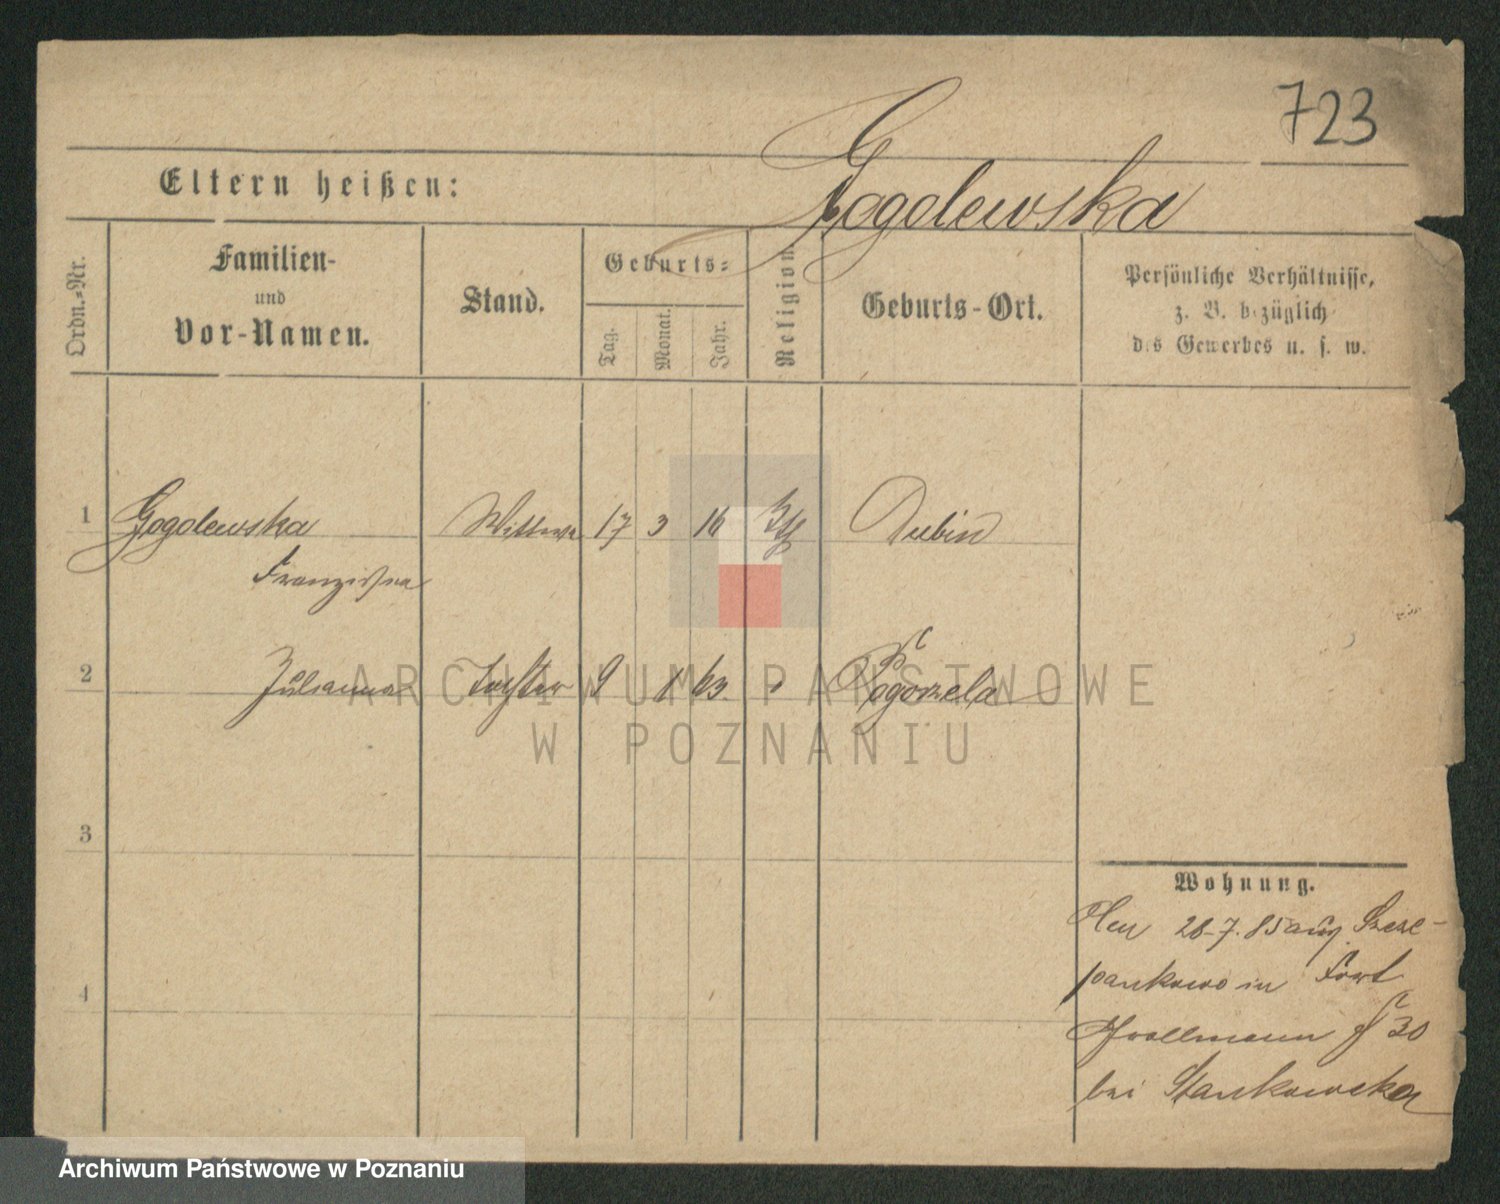 723
Gogolewska
Eltern heißen:
Ordn.-Nr.
Familien-
und
Vor-Namen.
Stand.
Geburts-
Tag.
Monat.
Jahr.
Religion
Geburts-Ort.
Persönliche Verhältnisse,
z. B. bezüglich
des Gewerbes u. s. w.
1 Gogolewska Wittwe 17 3 16 Dubin
Franziska
2 Julianna Tochter 9 63. Pogorzela
ARCHIWUM PAŃSTWOWE
W POZNANIU
3
4
Wohnung.
28-7.85 aus Szcze-
pankowo in Fort
30
bei Stankowska
Archiwum Państwowe w Poznaniu